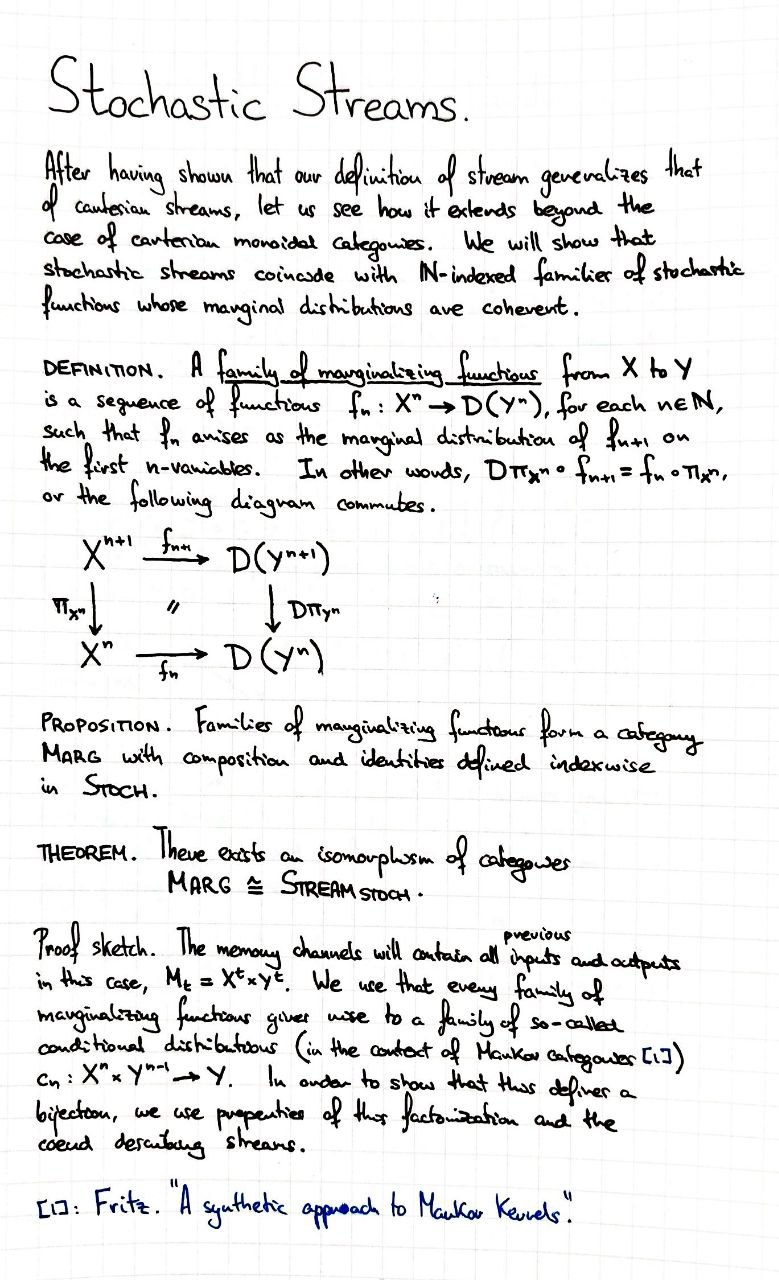 Stochastic Streams.
After having shown that our definition of stream generalizes that
of cartesian streams, let us see how it extends beyond the
case of cartesian monoidal categories. We will show that
stochastic streams coincide with ℕ-indexed families of stochastic
functions whose marginal distributions are coherent.
DEFINITION. A family of marginalizing functions from X to Y
is a sequence of functions fₙ : Xⁿ → D(Yⁿ), for each n∈ℕ,
such that fₙ arises as the marginal distribution of fₙ₊₁ on
the first n-variables. In other words, Dπ_Xⁿ ∘ fₙ₊₁ = fₙ ∘ π_Xⁿ,
or the following diagram commutes.
Xⁿ⁺¹ fₙ₊₁ → D(Yⁿ⁺¹)
π_Xⁿ ↓〃 ↓ Dπ_Yⁿ
Xⁿ → fₙ D(Yⁿ)
PROPOSITION. Families of marginalizing functions form a category
MARG with composition and identities defined indexwise
in STOCH.
THEOREM. There exists an isomorphism of categories
MARG ≅ STREAM STOCH.
Proof sketch. The memory channels will contain all previous inputs and outputs
in this case, Mₜ = Xᵗ×Yᵗ. We use that every family of
marginalizing functions gives rise to a family of so-called
conditional distributions (in the context of Markov categories [1])
cₙ : Xⁿ × Yⁿ⁻¹ → Y. In order to show that this defines a
bijection, we use properties of this factorization and the
coend describing streams.
[1]: Fritz. "A synthetic approach to Markov Kernels".